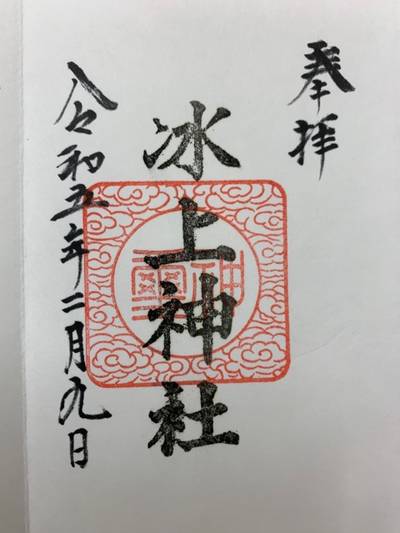 奉拝
冰上神社
令和五年二月九日